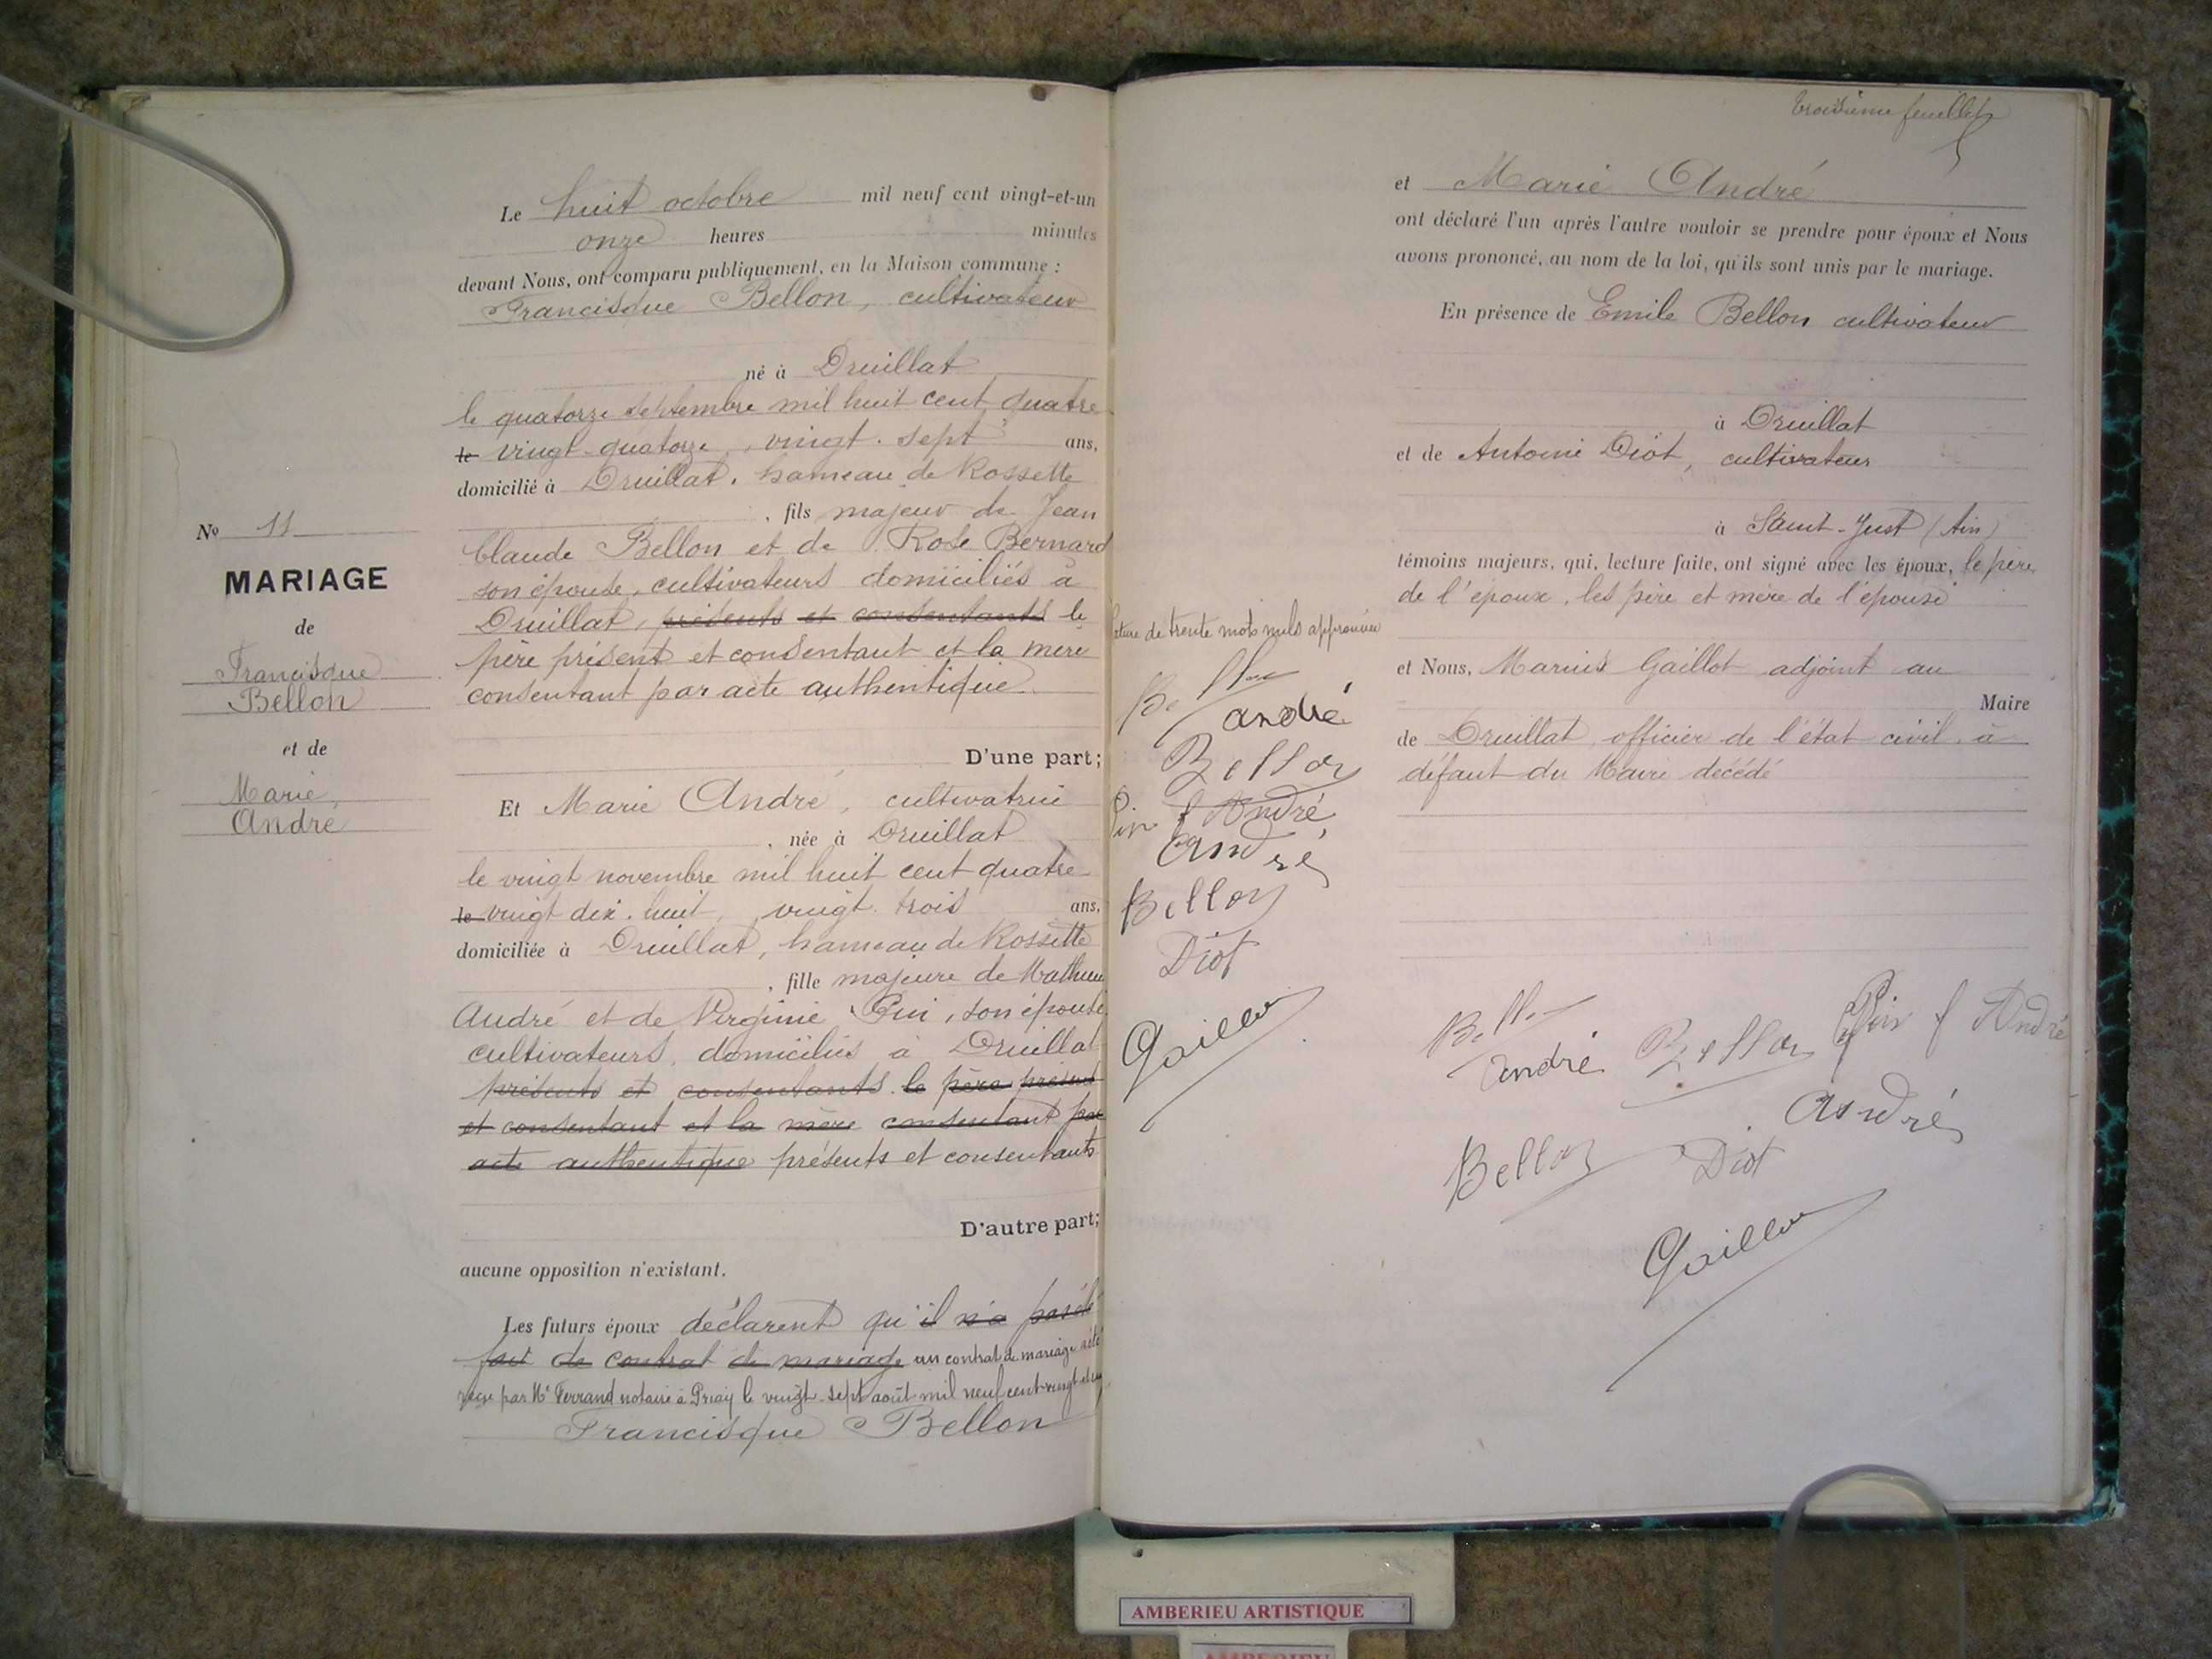 Le huit octobre mil neuf cent vingt-et-un
onze heures minutes
devant Nous, ont comparu publiquement, en la Maison commune :
Francisque Bellon, cultivateur
né à Druillat
le quatorze septembre mil huit cent quatre
le vingt-quatorze, vingt-sept ans,
domicilié à Druillat, hameau de Rossette
, fils majeur de Jean
Claude Bellon et de Rose Bernard
son épouse, cultivateurs domiciliés à
Druillat, présents et consentants le
père présent et consentant et la mère
consentant par acte authentique
D'une part;
Et Marie André, cultivatrice
, née à Druillat
le vingt novembre mil huit cent quatre
le vingt dix-huit, vingt-trois ans,
domiciliée à Druillat, hameau de Rossette
, fille majeure de Mathieu
André et de Virginie Pin, son épouse
cultivateurs, domiciliés à Druillat
présents et consentants le père présent
et consentant et la mère consentant par
acte authentique présents et consentants
D'autre part;
aucune opposition n'existant.
Les futurs époux déclarent qu'il n'a pas été
fait de contrat de mariage un contrat de mariage a été
reçu par Me Ferrand notaire à Priay le vingt-sept août mil neuf cent vingt et un
Francisque Bellon
No 11
MARIAGE
de
Francisque
Bellon
et de
Marie
André
de trente mots nuls approuvée
Bellon
André
Bellon
Pin f André
André
Bellon
Diot
Gaillot
troisième feuillet
et Marie André
ont déclaré l'un après l'autre vouloir se prendre pour époux et Nous
avons prononcé, au nom de la loi, qu'ils sont unis par le mariage.
En présence de Emile Bellon cultivateur
à Druillat
et de Antoine Diot, cultivateur
à Saint-Just (Ain)
témoins majeurs, qui, lecture faite, ont signé avec les époux, le père
de l'époux, les père et mère de l'épouse
et Nous, Marius Gaillot adjoint au
Maire
de Druillat officier de l'état civil à
défaut du Maire décédé
Bellon
André Bellon Pin f André
André
Bellon Diot
Gaillot
AMBERIEU ARTISTIQUE
AMBERIEU